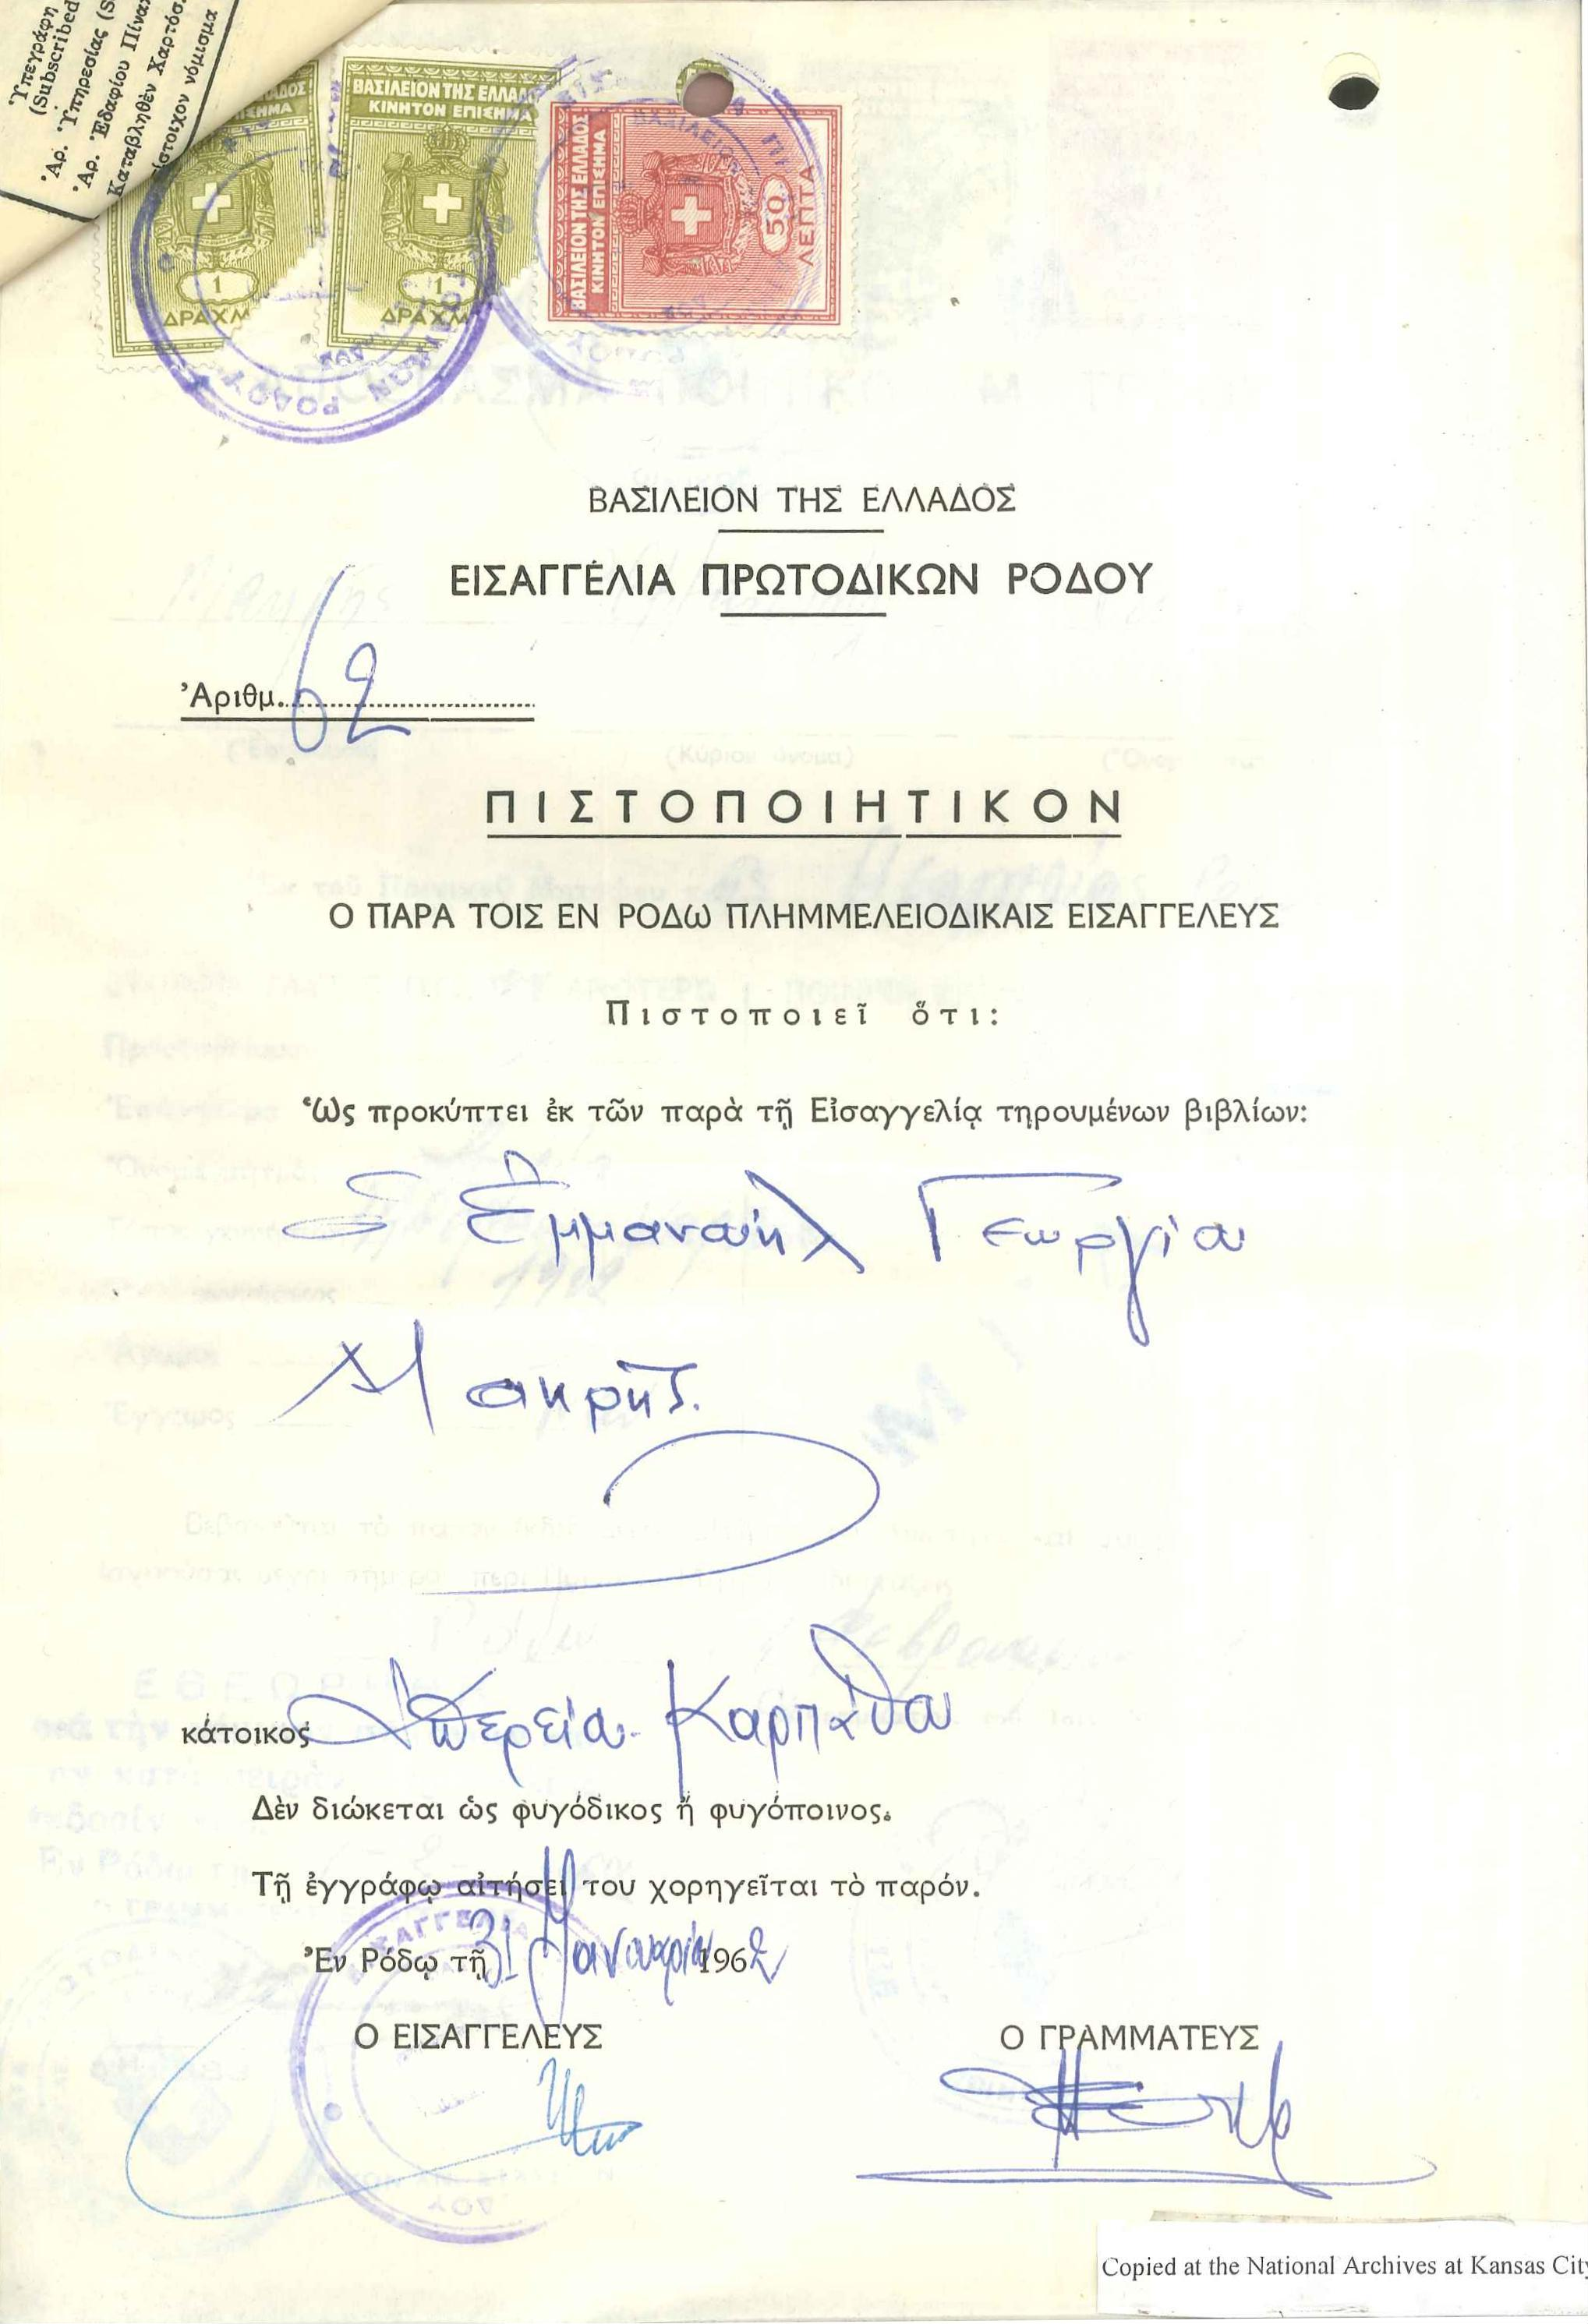 Ὑπεγράφη
(Subscribed
Ἀρ. Ὑπηρεσίας (S
Ἀρ. Ἐδαφίου Πίνακ
Καταβληθὲν Χαρτόσ.
ίστοιχον νόμισμα
ΒΑΣΙΛΕΙΟΝ ΤΗΣ ΕΛΛΑΔΟΣ
ΚΙΝΗΤΟΝ ΕΠΙΣΗΜΑ
1
ΔΡΑΧΜ
1
ΔΡΑΧΜ
ΒΑΣΙΛΕΙΟΝ ΤΗΣ ΕΛΛΑΔΟΣ
ΚΙΝΗΤΟΝ ΕΠΙΣΗΜΑ
50
ΛΕΠΤΑ
ΡΟΔΟΥ
ΒΑΣΙΛΕΙΟΝ ΤΗΣ ΕΛΛΑΔΟΣ
ΕΙΣΑΓΓΕΛΙΑ ΠΡΩΤΟΔΙΚΩΝ ΡΟΔΟΥ
Ἀριθμ. 62
ΠΙΣΤΟΠΟΙΗΤΙΚΟΝ
Ο ΠΑΡΑ ΤΟΙΣ ΕΝ ΡΟΔΩ ΠΛΗΜΜΕΛΕΙΟΔΙΚΑΙΣ ΕΙΣΑΓΓΕΛΕΥΣ
Πιστοποιεῖ ὅτι:
Ὡς προκύπτει ἐκ τῶν παρὰ τῇ Εἰσαγγελίᾳ τηρουμένων βιβλίων:
Ἐμμανουὴλ Γεωργίου
Μακρῆς.
κάτοικος Ἀπερείου Καρπάθου
Δὲν διώκεται ὡς φυγόδικος ἢ φυγόποινος.
Τῇ ἐγγράφῳ αἰτήσει του χορηγεῖται τὸ παρόν.
Ἐν Ρόδῳ τῇ 31 Ἰανουαρίου 1962
Ο ΕΙΣΑΓΓΕΛΕΥΣ
Ο ΓΡΑΜΜΑΤΕΥΣ
Copied at the National Archives at Kansas City